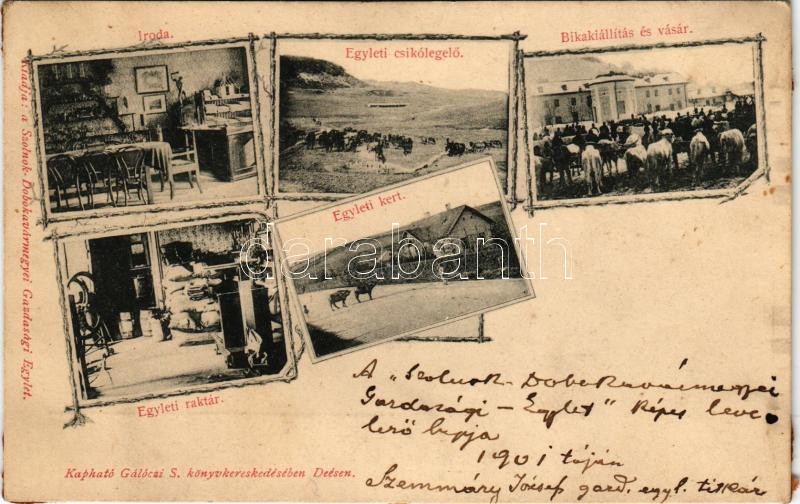 Iroda.
Egyleti csikólegelő.
Bikakiállítás és vásár.
Kiadja: a Szolnok-Dobokavármegyei Gazdasági Egylet.
Egyleti kert.
darabanth
Egyleti raktár.
A „Szolnok-Dobokavármegyei
Gazdasági - Egylet" képes leve-
lező lapja
1901 táján
Szemmáry József gazd. egyl. titkár
Kapható Gálóczi S. könyvkereskedésében Deésen.